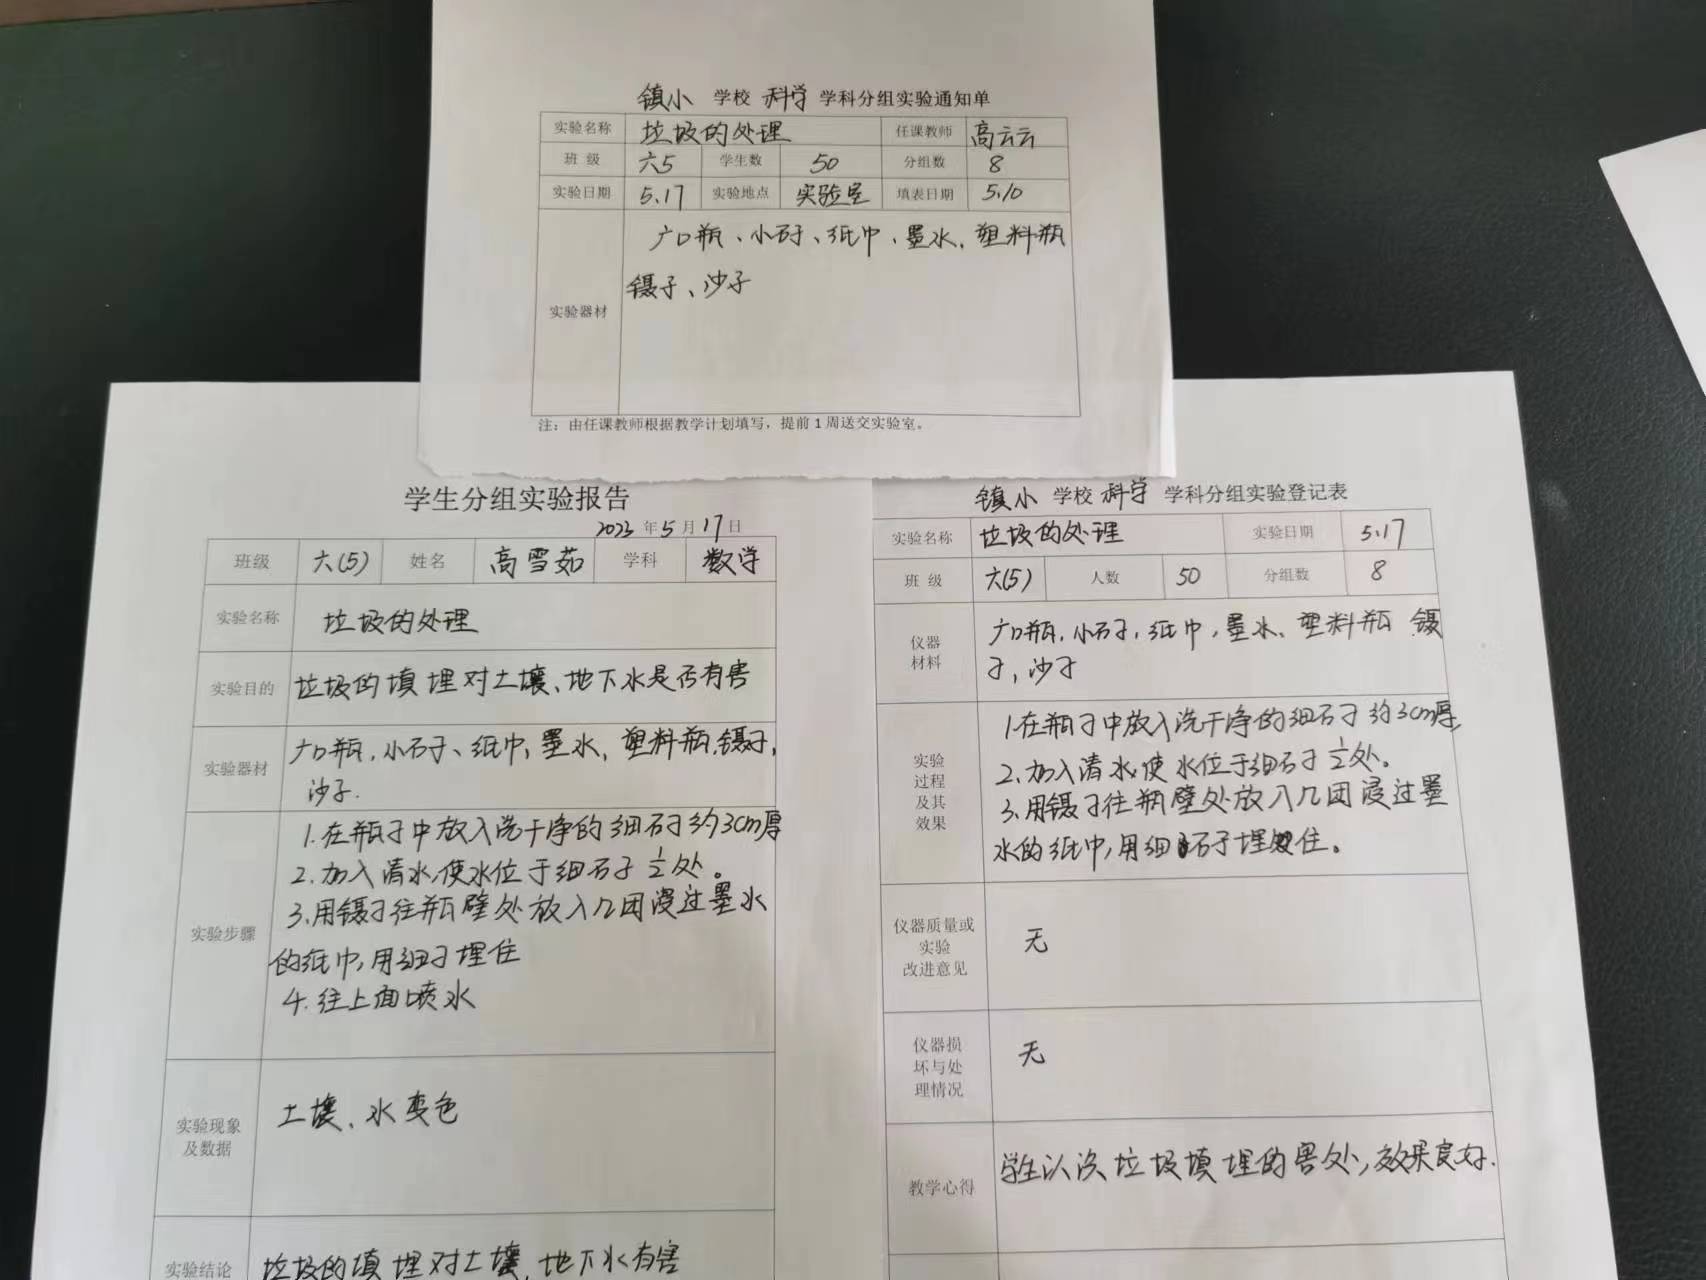 镇小 学校 科学 学科分组实验通知单
实验名称 垃圾的处理 任课教师 高云云
班 级 六5 学生数 50 分组数 8
实验日期 5.17 实验地点 实验室 填表日期 5.10
广口瓶、小石子、纸巾、墨水、塑料瓶
镊子、沙子
实验器材
注：由任课教师根据教学计划填写，提前1周送交实验室。
学生分组实验报告
2023 年 5 月 17 日
班级 六(5) 姓名 高雪茹 学科 数学
实验名称 垃圾的处理
实验目的 垃圾的填埋对土壤、地下水是否有害
实验器材 广口瓶，小石子、纸巾，墨水，塑料瓶，镊子，
沙子.
实验步骤
1.在瓶子中放入洗干净的细石子约3cm厚
2.加入清水，使水位于细石子½处。
3.用镊子往瓶壁处放入几团浸过墨水
的纸巾，用细子埋住
4.往上面喷水
实验现象
及数据
土壤、水变色
实验结论 垃圾的填埋对土壤、地下水有害
镇小 学校 科学 学科分组实验登记表
实验名称 垃圾的处理 实验日期 5.17
班 级 六(5) 人数 50 分组数 8
仪器
材料
广口瓶，小石子，纸巾，墨水、塑料瓶 镊
子，沙子
实验
过程
及其
效果
1.在瓶子中放入洗干净的细石子约3cm厚，
2.加入清水，使水位于细石子½处。
3.用镊子往瓶壁处放入几团浸过墨
水的纸巾，用细石子埋住。
仪器质量或
实验
改进意见
无
仪器损
坏与处
理情况
无
教学心得 学生认次垃圾填埋的害处，效果良好.